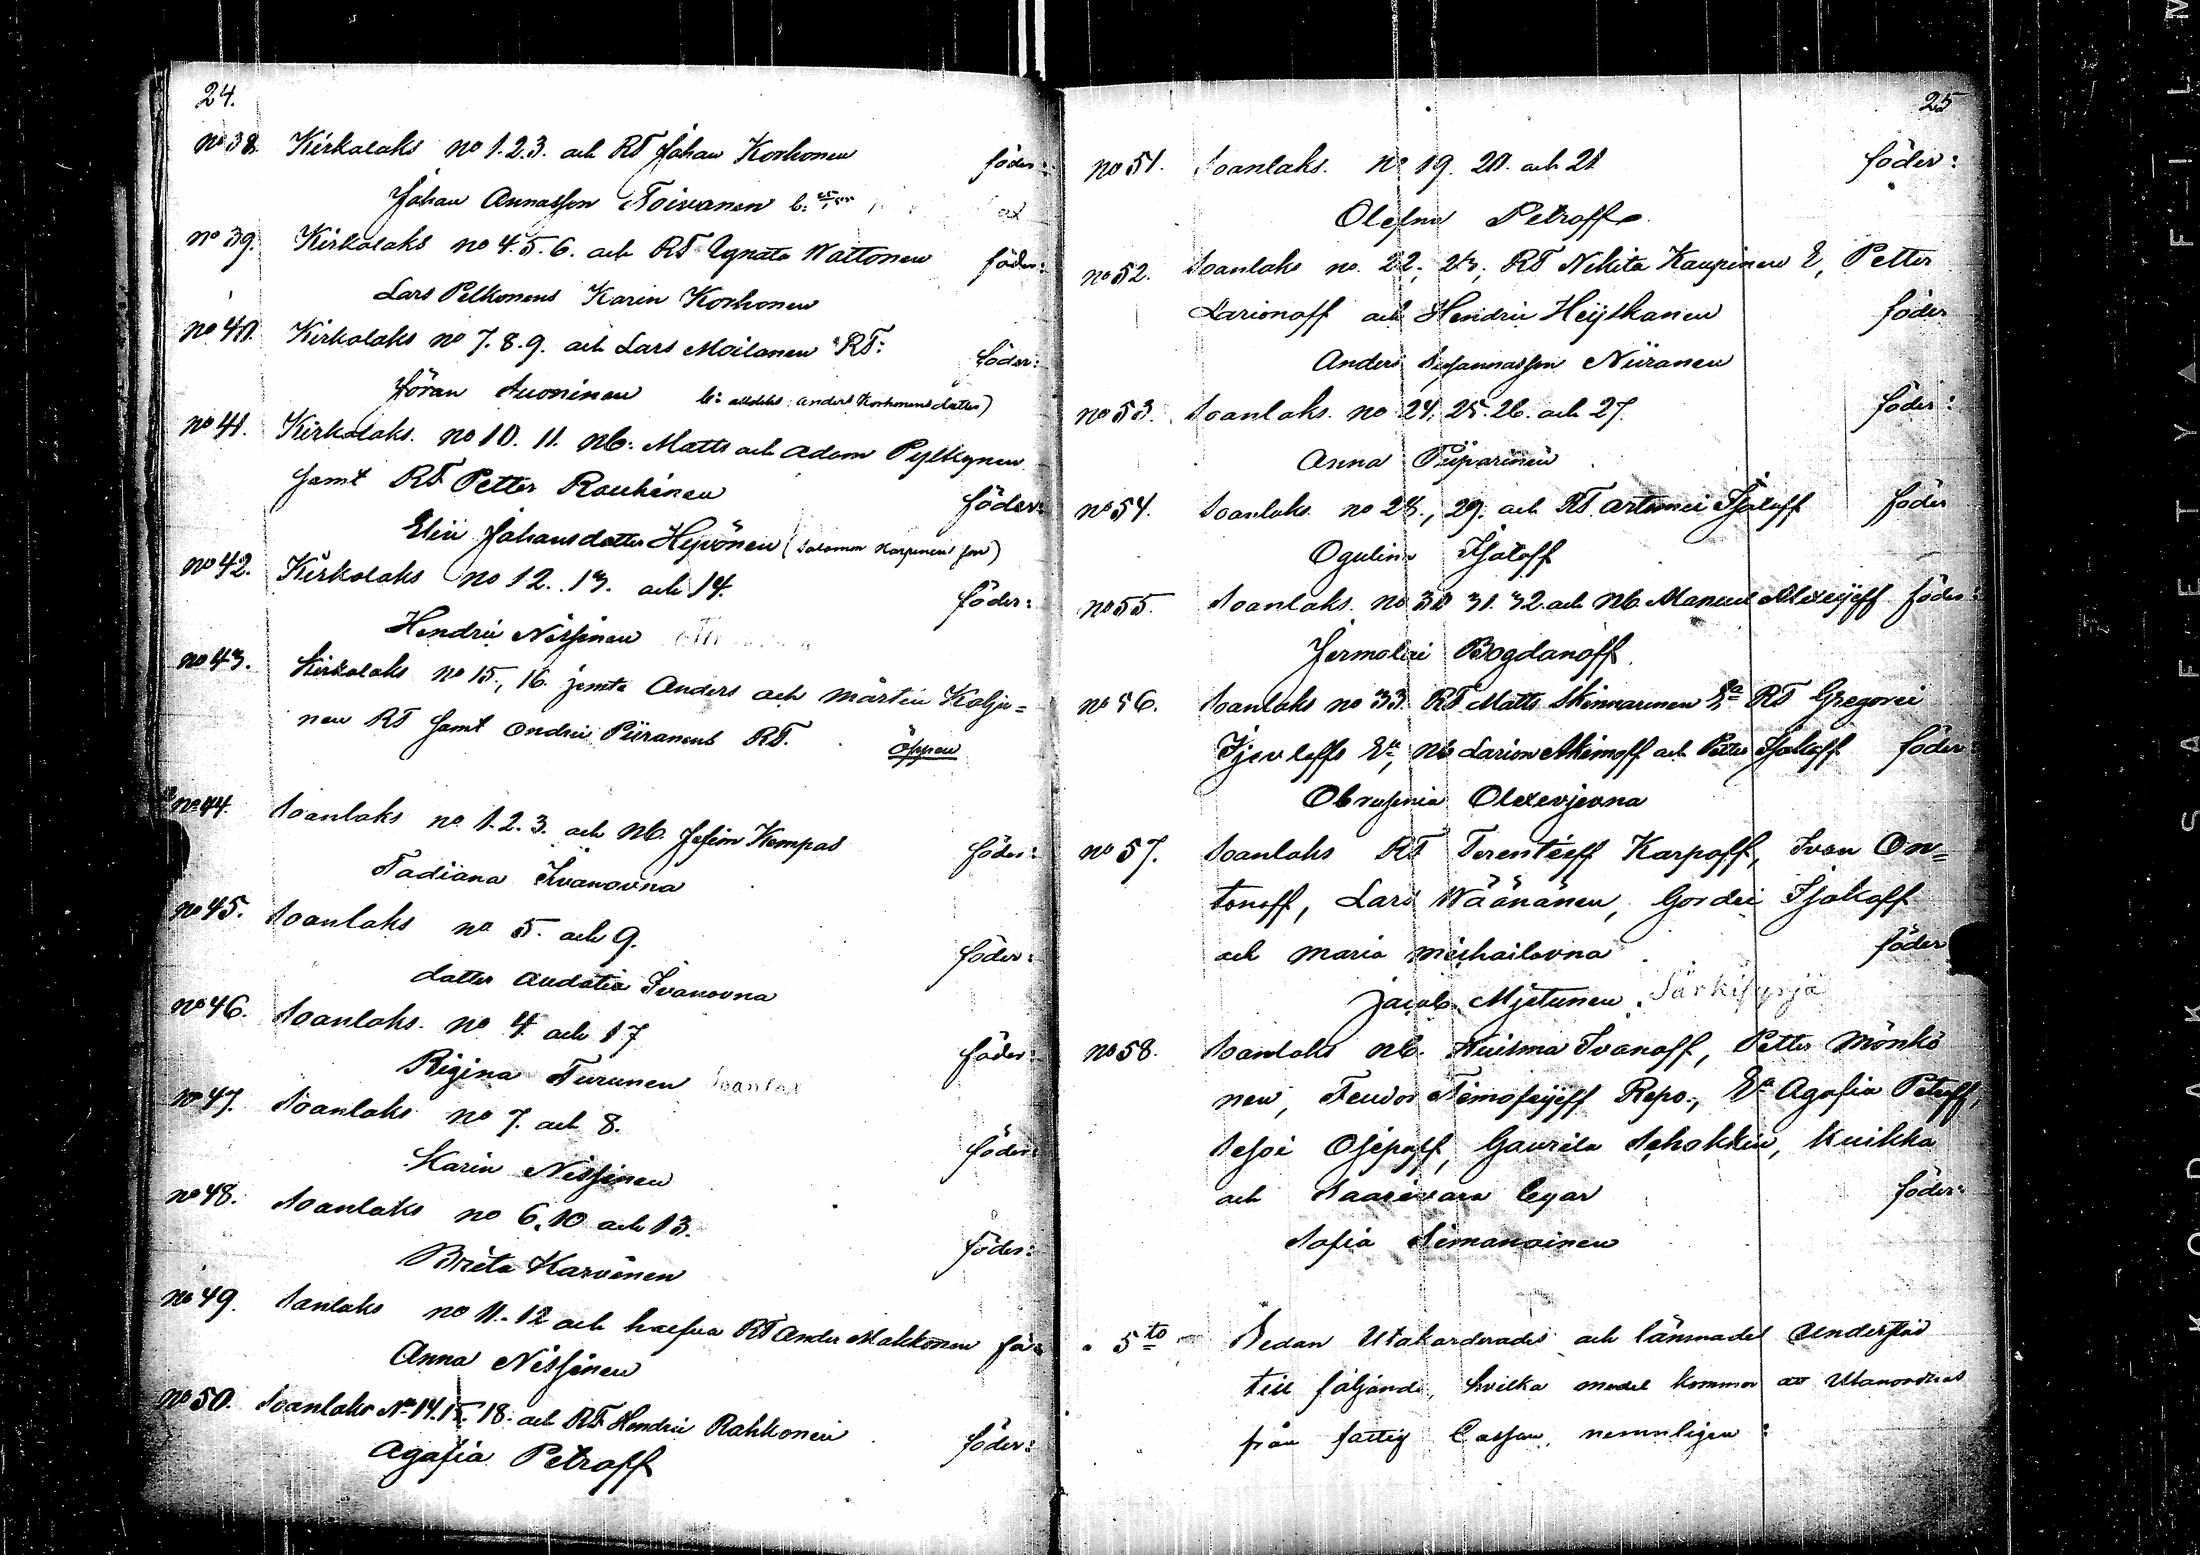 24.
No 38. Kirkolaks no 1.2.3. och RT Johan Korhonen föder:
Johan Annasson Toivanen b:
No 39. Kirkolaks no 4.5.6. och RT Ignats Wattonen föder:
Lars Pelkonens Karin Korhonen
No 40. Kirkolaks no 7.8.9. och Lars Moilanen RT: föder:
Jöran Auoninen b: Anders Korhonens datter)
No 41. Kirkolaks. no 10. 11. Nb: Matts och Adam Pylkynen
samt RT Petter Rouhinen föder:
Elin Johansdotter Hyvönen (Salomon Karpinens son)
No 42. Kirkolaks no 12. 13. och 14. föder:
Hendric Nissinen
No 43. Kirkolaks no 15, 16. jemte Anders och Mårten Kolju=
nen RT samt Ondrei Piiranens RT. öppen
No 44. Soanlaks no 1.2.3. och Nb. Jefim Kompas föder:
Tadiana Ivanovna
No 45. Soanlaks no 5. och 9. föder:
datter Audotia Ivanovna
No 46. Soanlaks. no 4 och 17 föder:
Rigina Turunen Soanlax
No 47. Soanlaks no 7. och 8. föder:
Karin Nissinen
No 48. Soanlaks no 6.10 och 13. föder:
Brita Karvinen
No 49. Sanlaks no 11.-12 och RT Ander Makkonen fö:
Anna Nissinen
No 50. Soanlaks No 14.15. 18. och RT Hendric Rahkonen föder:
Agafia Petroff
25
No 51. Soanlaks. No 19. 20. och 21 föder:
Olefna Petroff
No 52. Soanlaks no. 22, 23, RT Nikita Kaupinen E, Petter
Larionoff och Hendric Heiskanen föder
Anders Susannasson Niiranen
No 53. Soanlaks. no 24. 25. 26. och 27. föder:
Anna Piiparinen
No 54. Soanlaks no 28., 29. och RT Artemei Tjatoff föder
Ogulina Tjatoff
No 55. Soanlaks. no 30 31. 32. och Nb. Manuel Alexejeff föder:
Jermolai Bogdanoff.
No 56. Soanlaks no 33. RT Matts Skinnarinen Ea RT Gregorei
Ea, Nb Larion Akimoff och Petter Tjakoff föder:
Obrusenia Olexevjevna
No 57. Soanlaks RT Terentieff Karpoff, Ivan On=
tonoff, Lars Wäänänen, Gordei Tjakoff
och Maria Michailovna föder
Jacob Mjetunen. Särkisyrjä
No 58. Soanlaks Nb. Kuisma Ivanoff, Petter Mönkö
nen, Feudor Timofejeff Repo., Ea Agafia Petroff,
Sesoi Osipoff, Gaurila Schokkin, Kuikka
och Saarivara byar föder:
Sofia Simanainen
5to Sedan Utakorderades och lämnades Understöd
till följande, hvilka medel kommer att Utanordnas
från fattig Cassan, nemnligen: